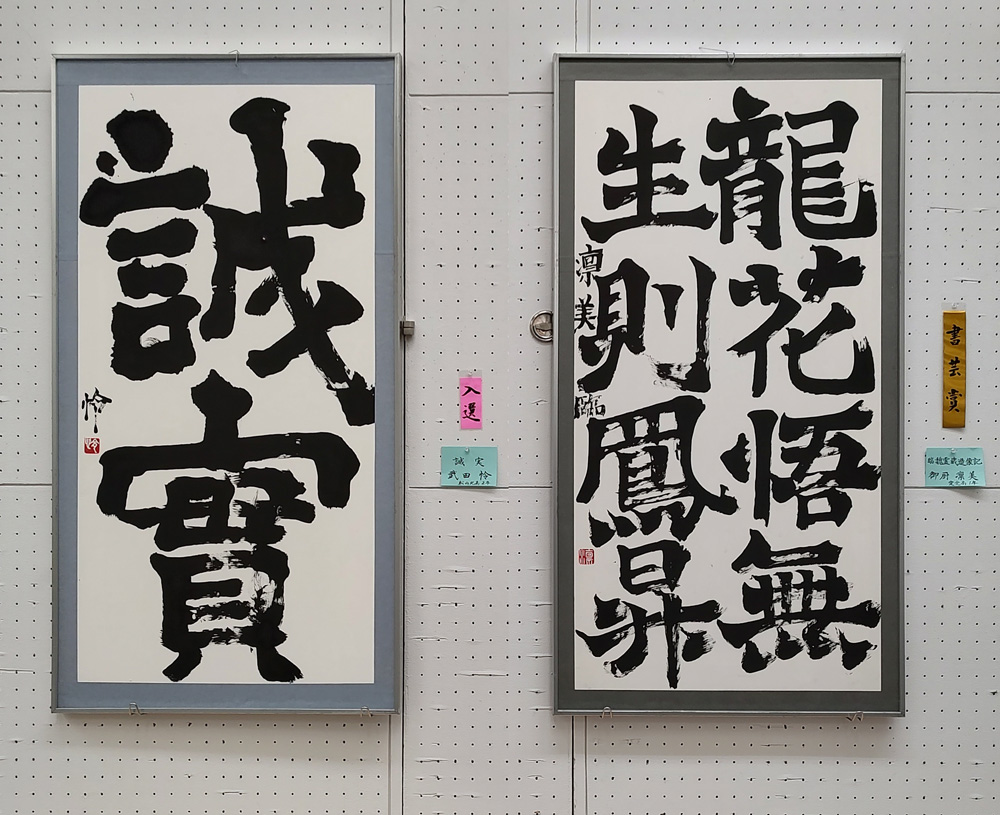 誠實
怜
入選
誠実
武田 怜
龍花悟無
生則鳳昇
凛美
臨
書芸賞
御厨 凛美